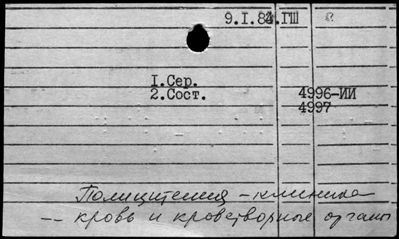 9.I.84.ГШ
I.Сер.
2.Сост. 4996-ИИ
4997
Полицитемия - клиника
-- кровь и кроветворные органы